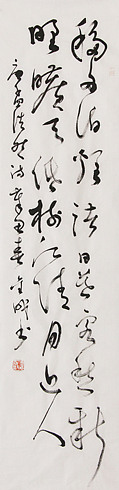 移舟泊煙渚日暮客愁新
野曠天低樹江清月近人
唐孟浩然詩春書